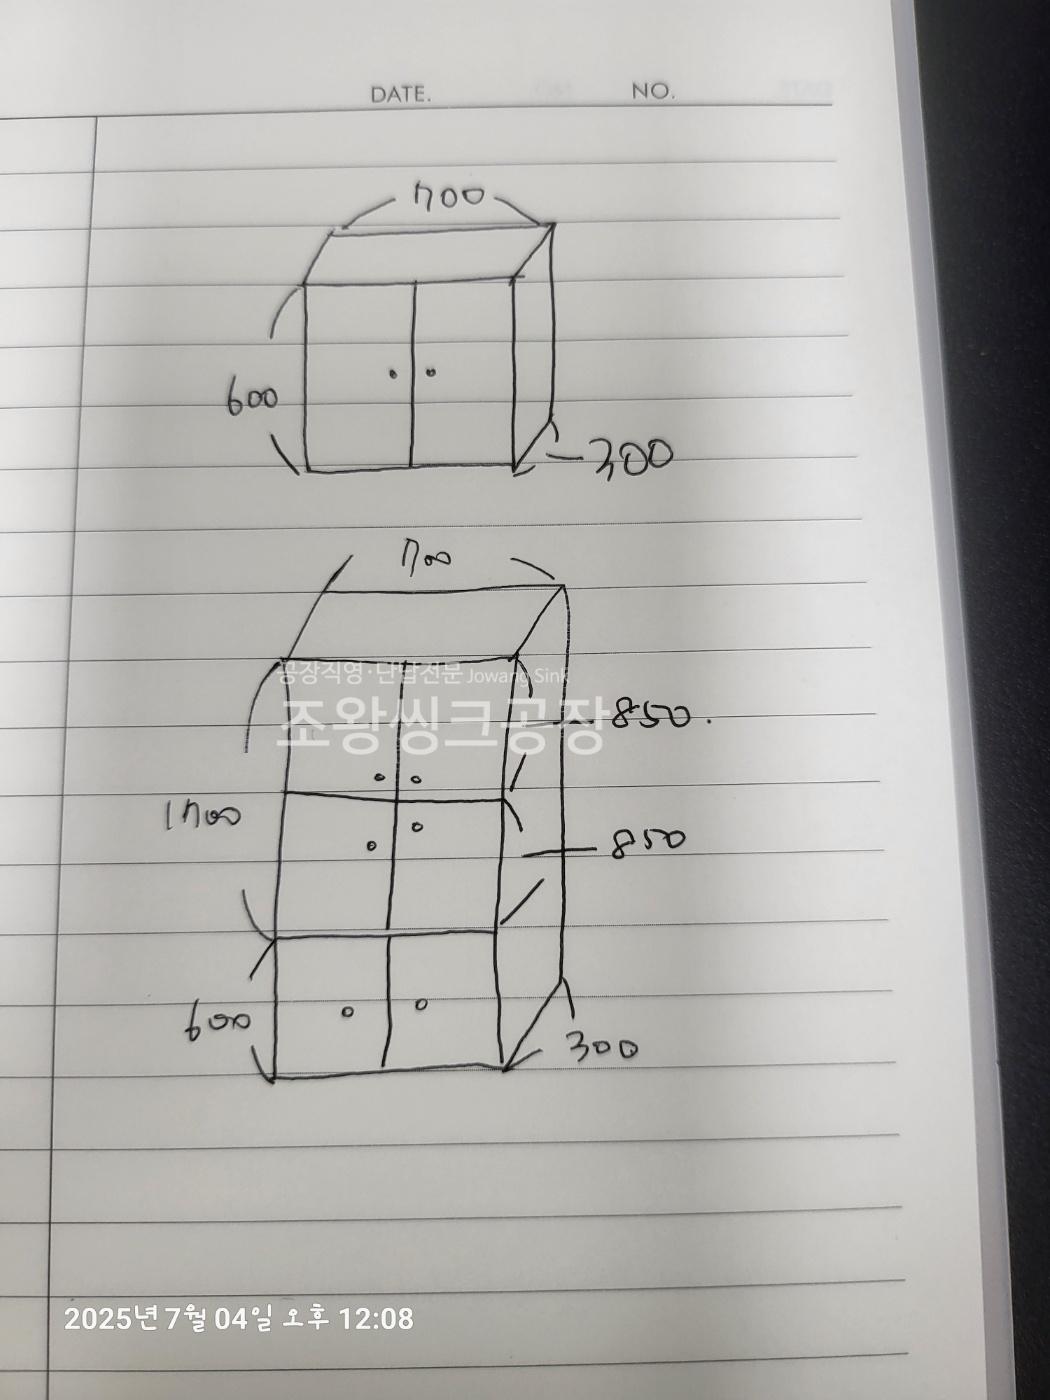 DATE. NO.
700
600
300
700
공장직영·단납전문 Jowang Sink
조왕씽크공장
850.
1700
850
600
300
2025년 7월 04일 오후 12:08